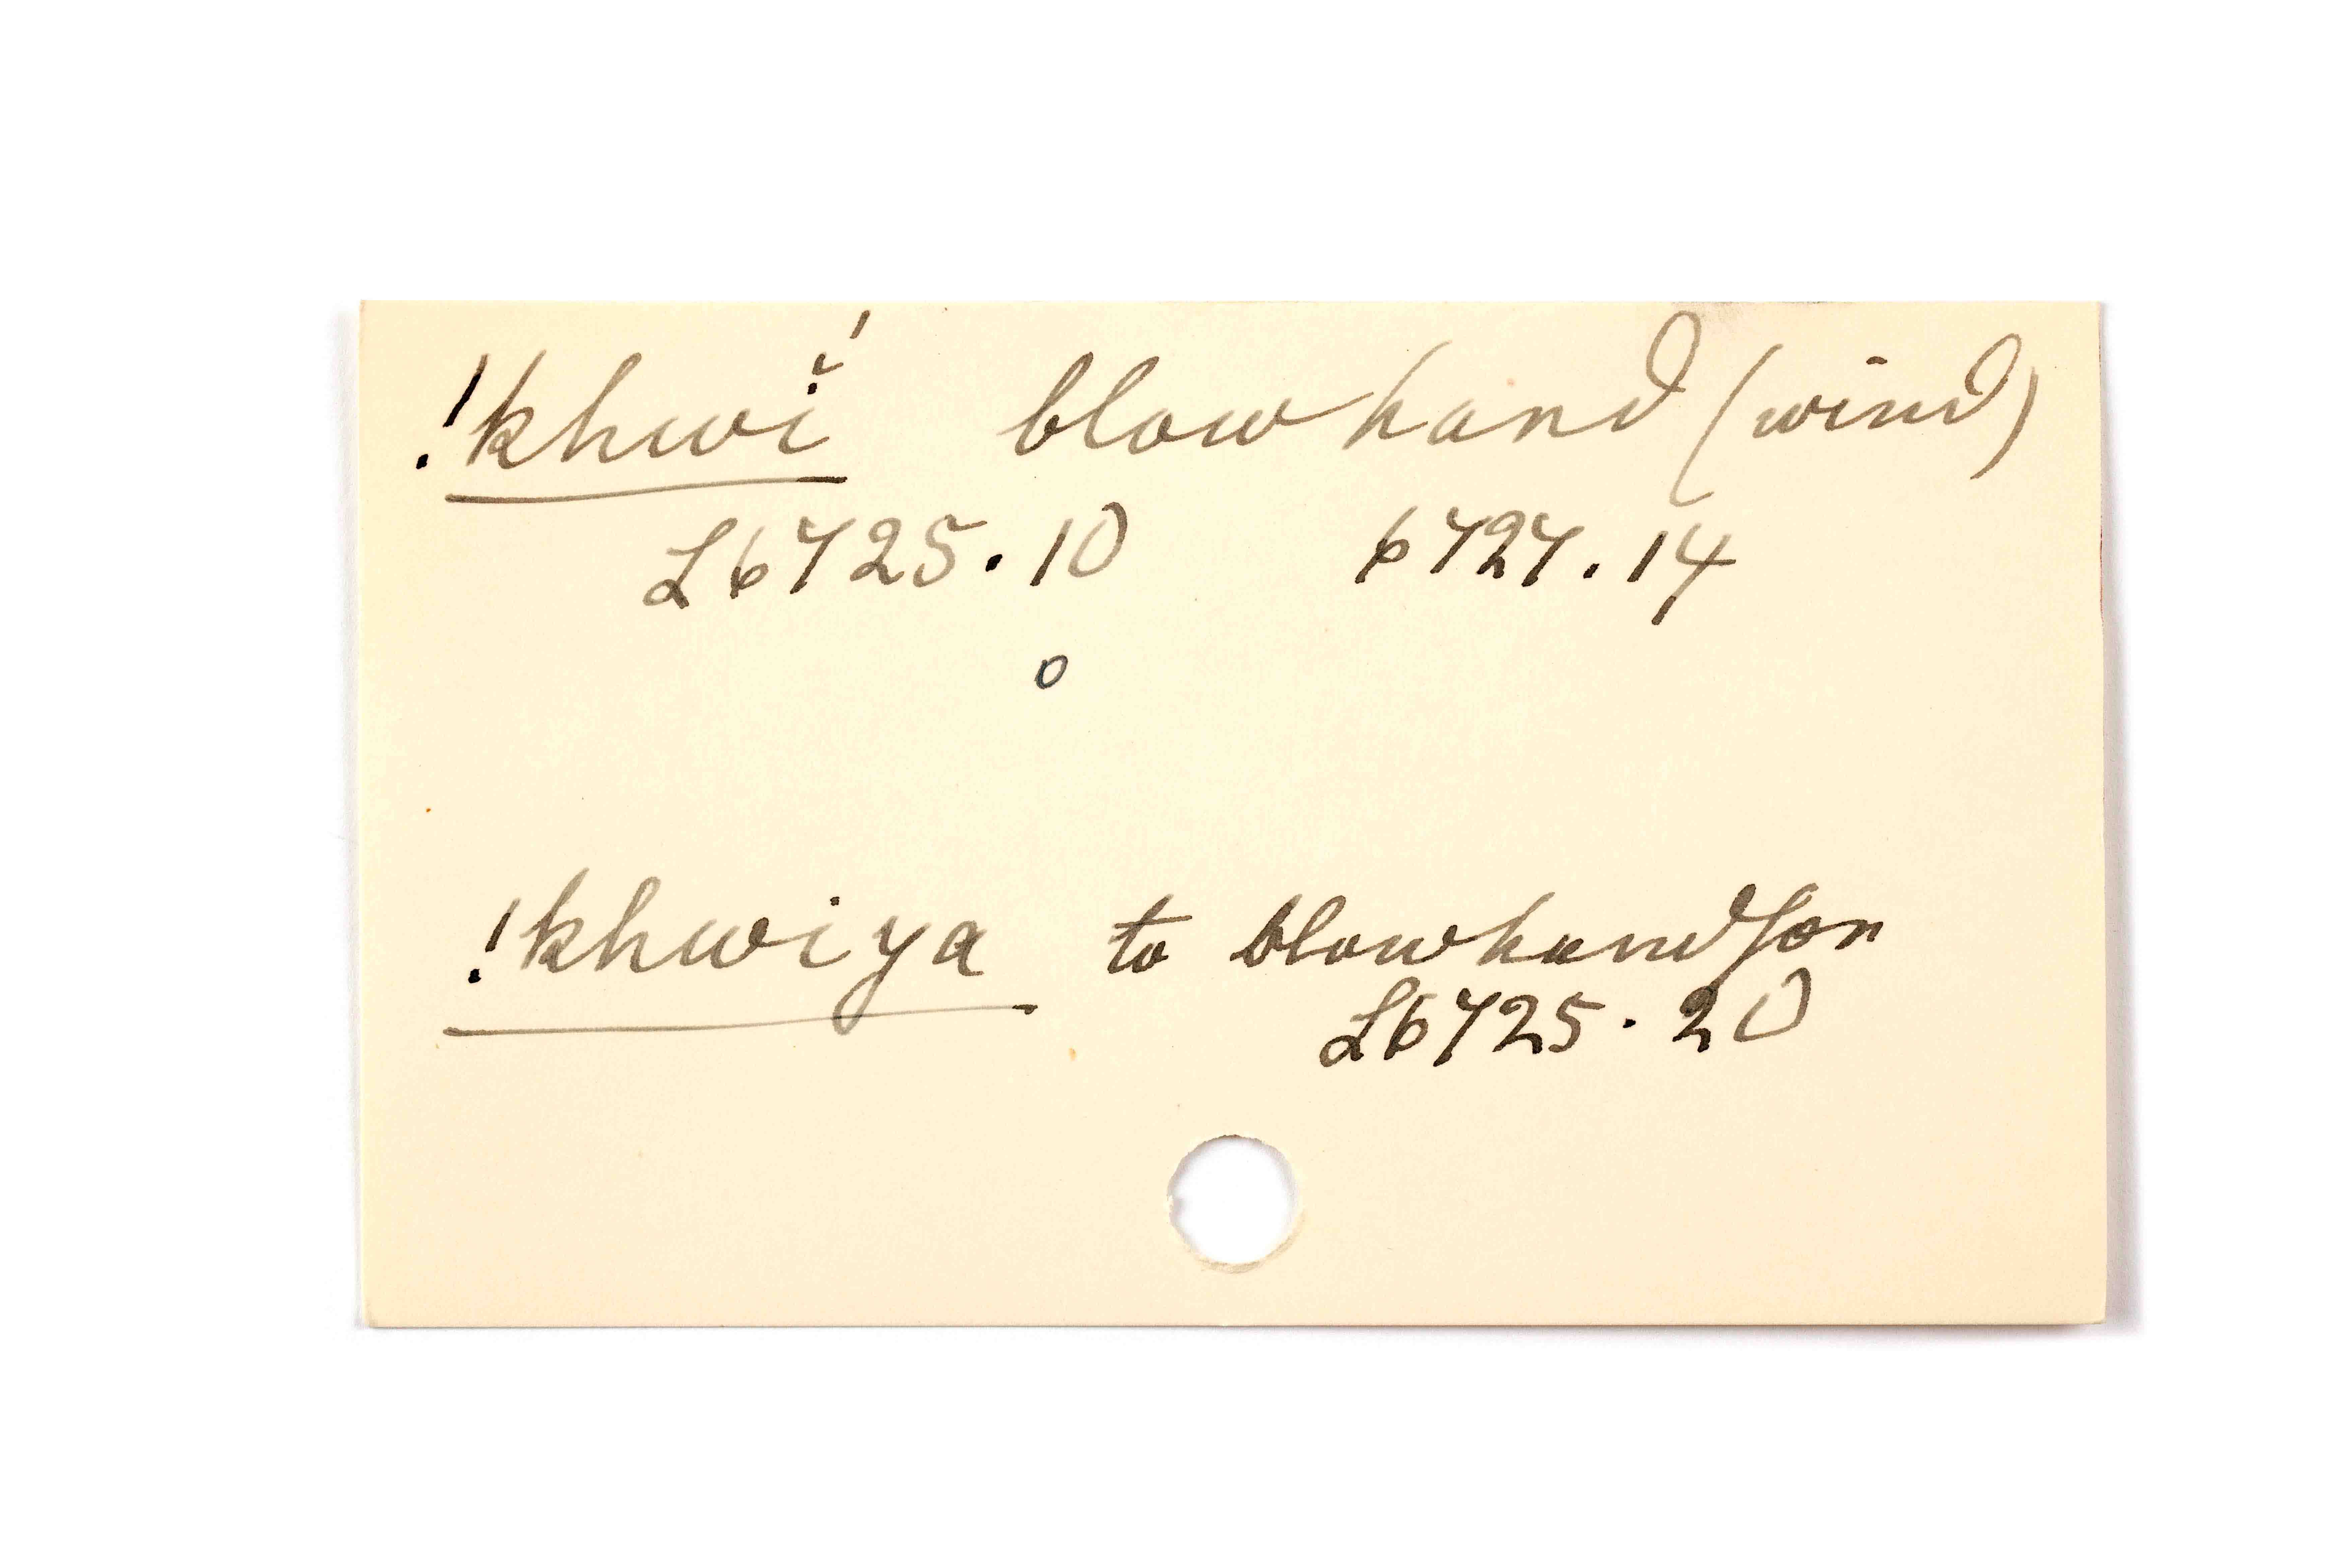 !khwĭ́ blow hard (wind)
L6725.10 6727.14
o
!khwiya to blow hard for
L6725.20